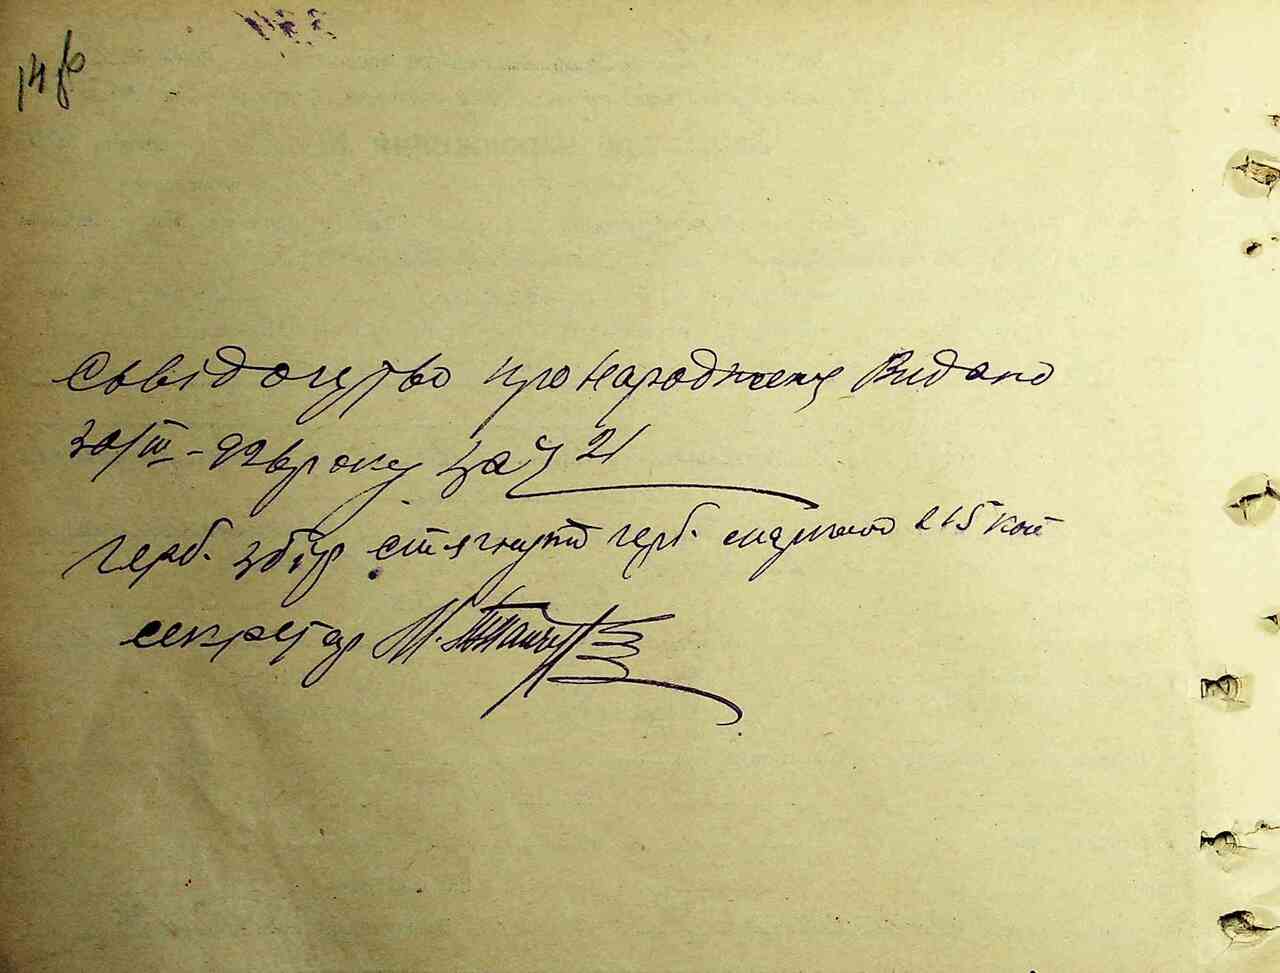 14
Съвідоцтво про народження Видано
30/III - 92в року за ч 21
герб. збір стягнуто герб. маркою 215 коп
секретар М.